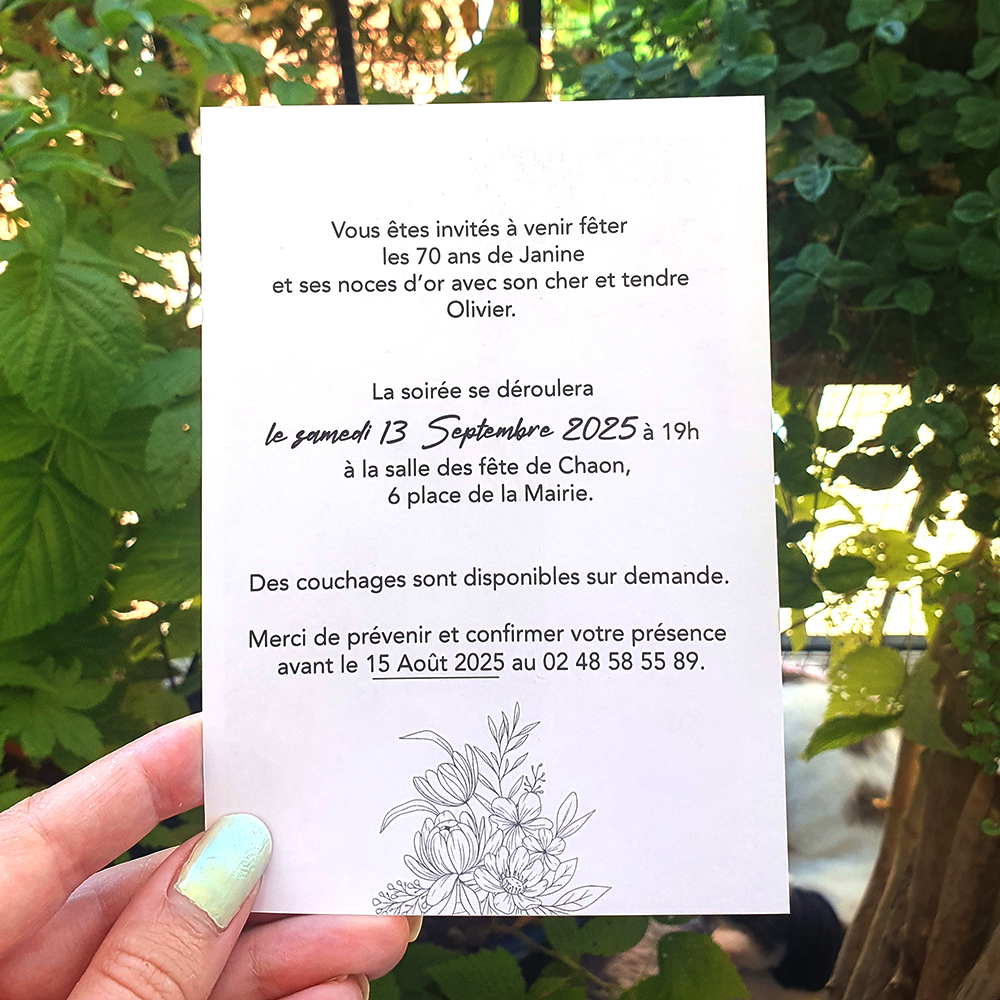 Vous êtes invités à venir fêter
les 70 ans de Janine
et ses noces d'or avec son cher et tendre
Olivier.
La soirée se déroulera
le samedi 13 Septembre 2025 à 19h
à la salle des fête de Chaon,
6 place de la Mairie.
Des couchages sont disponibles sur demande.
Merci de prévenir et confirmer votre présence
avant le 15 Août 2025 au 02 48 58 55 89.